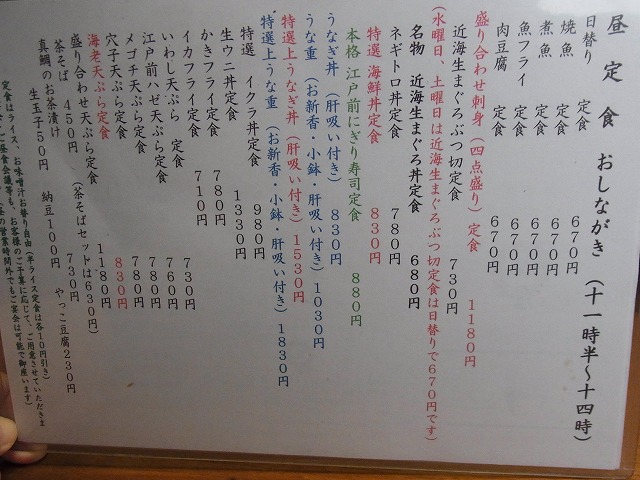 昼定食 おしながき (十一時半〜十四時)
日替り 定食 670円
焼魚 定食 670円
煮魚 定食 670円
魚フライ 定食 670円
肉豆腐 定食 670円
盛り合わせ刺身 (四点盛り) 定食 1180円
近海生まぐろぶつ切定食 730円
(水曜日、土曜日は近海生まぐろぶつ切定食は日替りで670円です)
名物 近海生まぐろ丼定食 680円
ネギトロ丼定食 780円
特選 海鮮丼定食 830円
本格 江戸前にぎり寿司定食 880円
うなぎ丼 (肝吸い付き) 830円
うな重 (お新香・小鉢・肝吸い付き) 1030円
特選上うなぎ丼 (肝吸い付き) 1530円
特選上うな重 (お新香・小鉢・肝吸い付き) 1830円
特選 イクラ丼定食 980円
生ウニ丼定食 1330円
かきフライ定食 780円
イカフライ定食 710円
いわし天ぷら 定食 730円
江戸前ハゼ天ぷら定食 760円
メゴチ天ぷら定食 780円
穴子天ぷら定食 780円
海老天ぷら定食 830円
盛り合わせ天ぷら定食 1180円
茶そば 450円 (茶そばセットは630円)
真鯛のお茶漬け 730円
生玉子50円 納豆100円 やっこ豆腐230円
定食はライス、お味噌汁お替り自由 (半ライス定食は各10円引き)
昼食会議等も、お客様のご予算に応じて、ご用意させていただきま
営業時間外でもご宴会は可能で御座います)